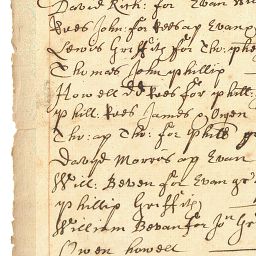 David Kirk: for Evan
Rees John: for Rees ap Evan
Lewis Griffith for Tho: Phe
Thomas John Phillip
Howell dd Rees for Phill:
Phill: Rees James Owen
Tho: ap Tho: for Phill
Davyd Morres ap Evan
Will: Beven for Evan gr
Phillip Griffith
William Bevan for Jn Gr
Owen howell